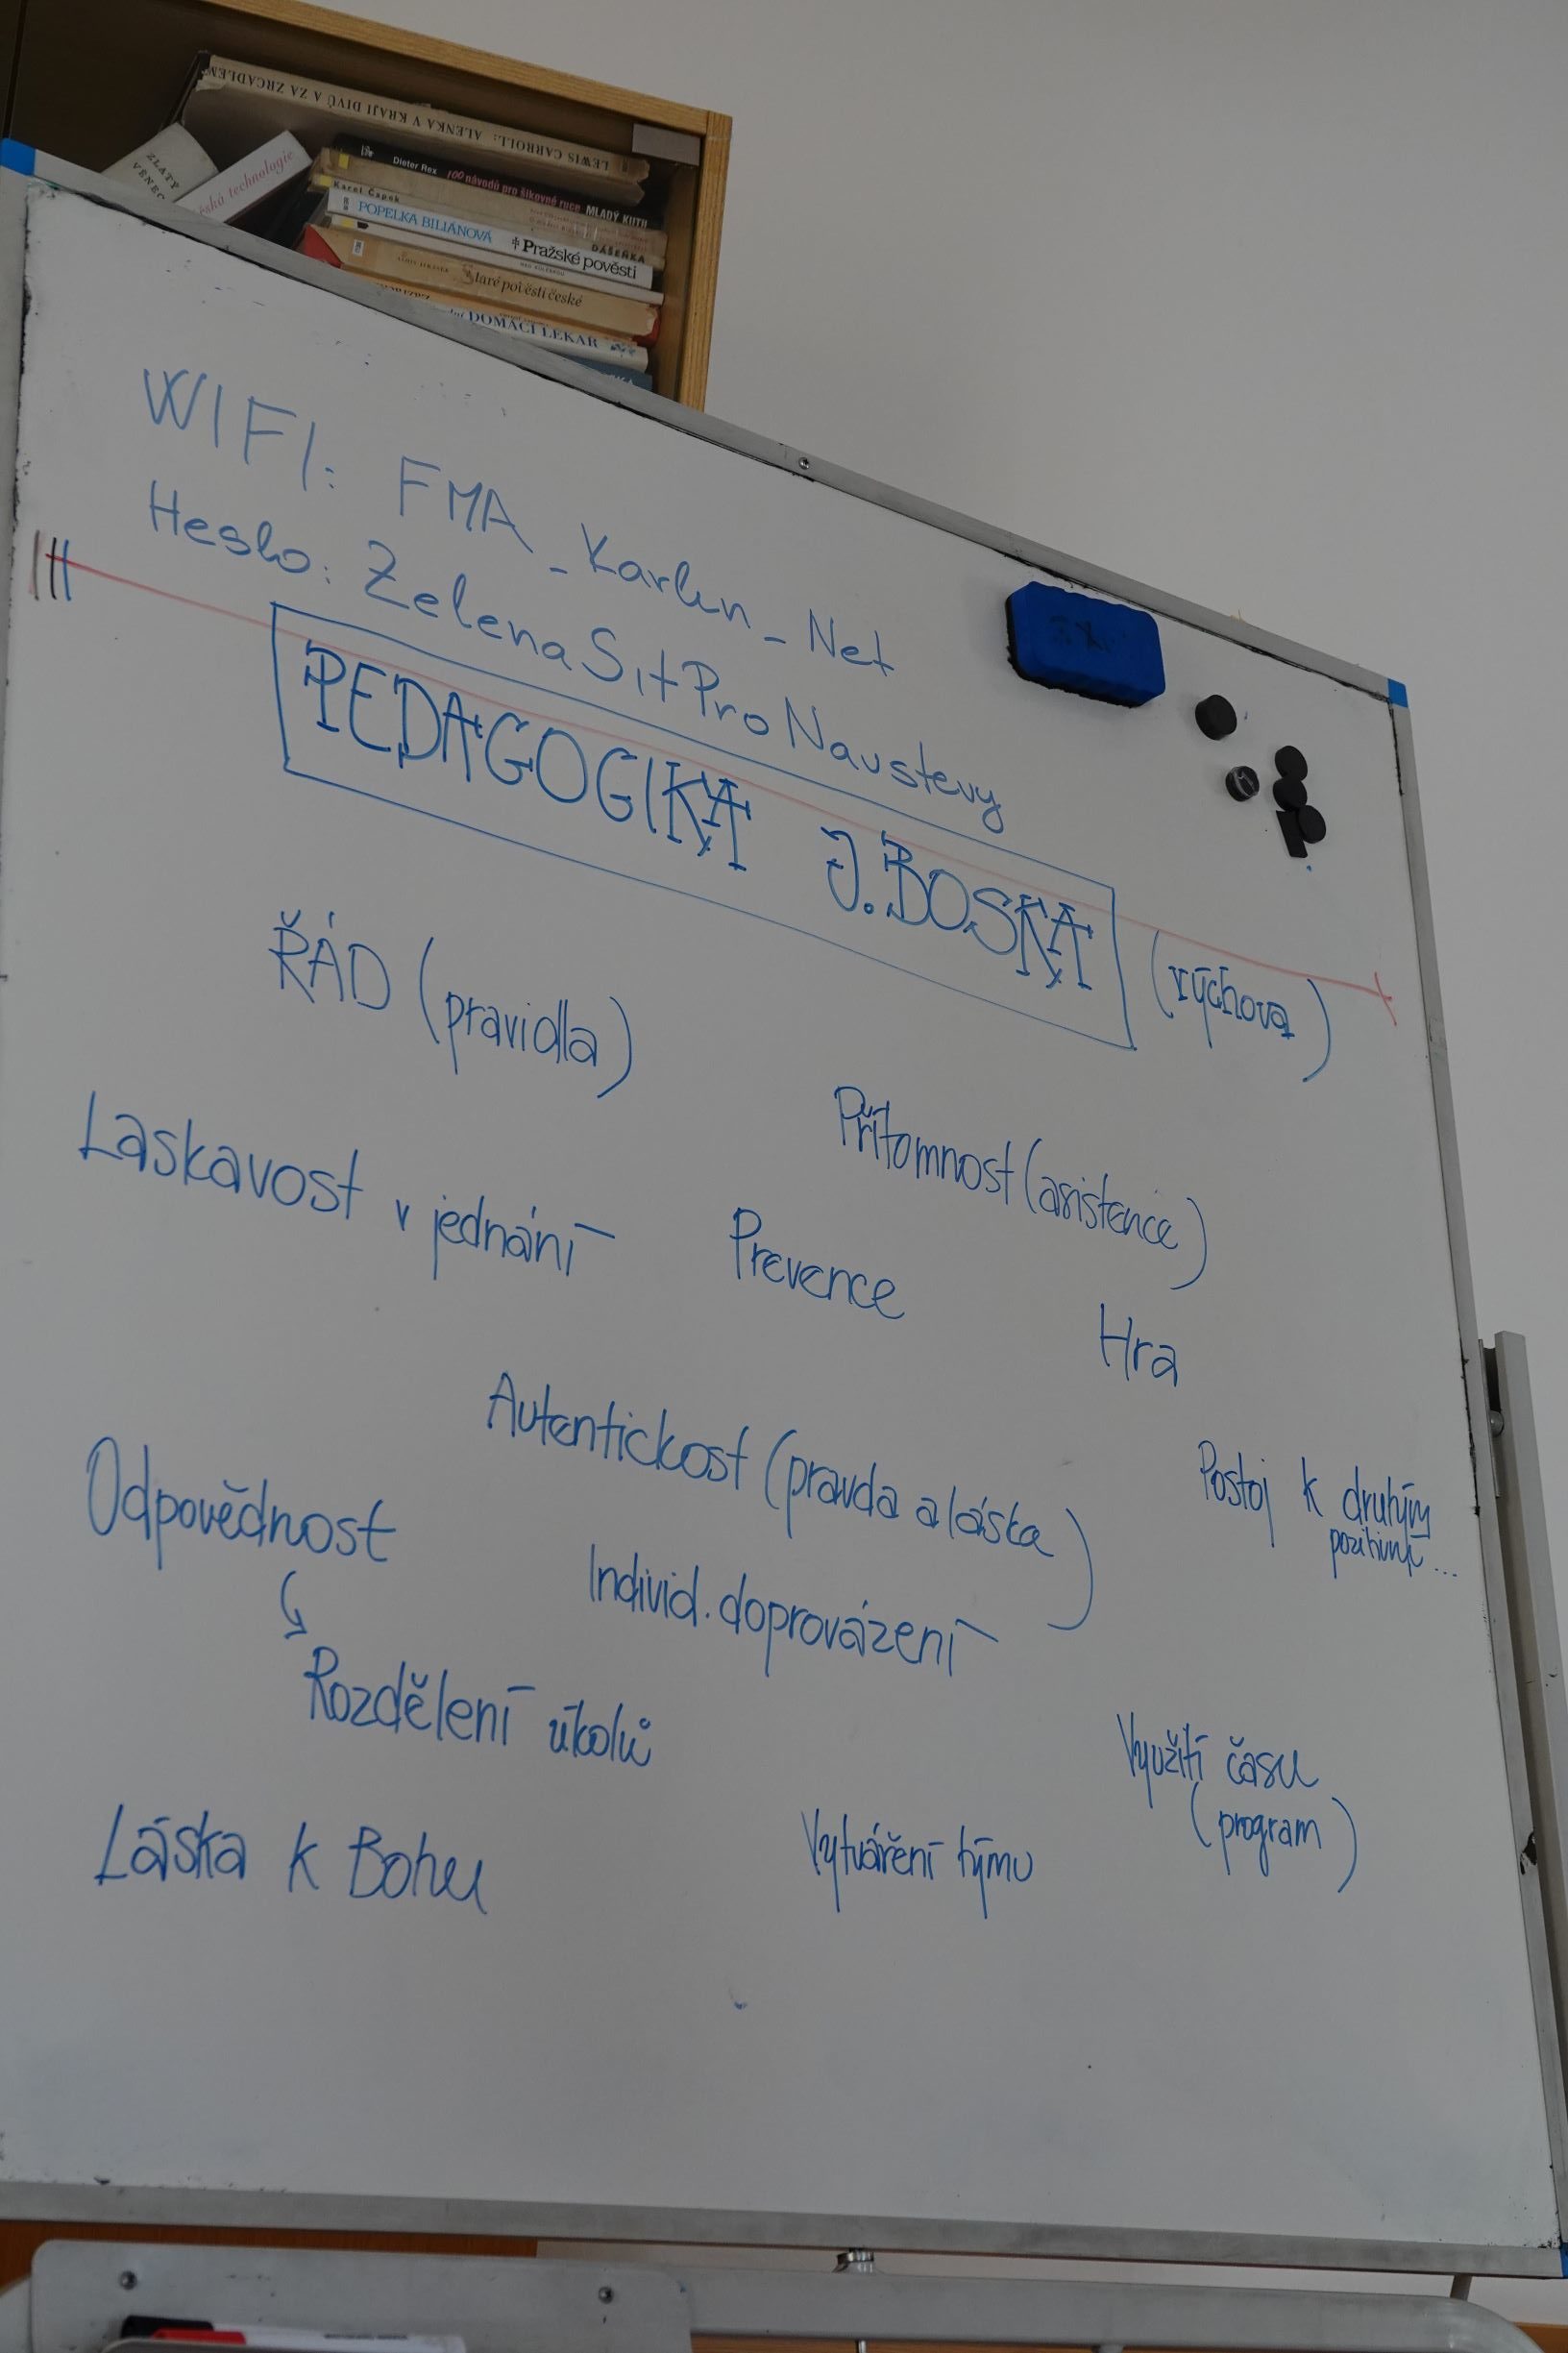 LEWIS CARROLL: ALENKA V KRAJI DIVŮ A ZA ZRCADLEM
ZLATÝ
VĚNEC
technologie
Dieter Rex 100 návodů pro šikovné ruce MLADÝ KUTIL
Karel Čapek
DÁŠEŇKA
POPELKA BILIÁNOVÁ Pražské pověsti
Staré pověsti české
DOMÁCÍ LÉKAŘ
WIFI: FMA_Karlin_Net
Heslo: ZelenaSitProNavstevy
PEDAGOGIKA J. BOSKA (výchova)
ŘÁD (pravidla)
Přítomnost (asistence)
Laskavost v jednání
Prevence
Hra
Autentickost (pravda a láska)
Postoj k druhým
pozitivní...
Odpovědnost
Individ. doprovázení
Rozdělení úkolů
Využití času
(program)
Láska k Bohu
Vytváření týmu